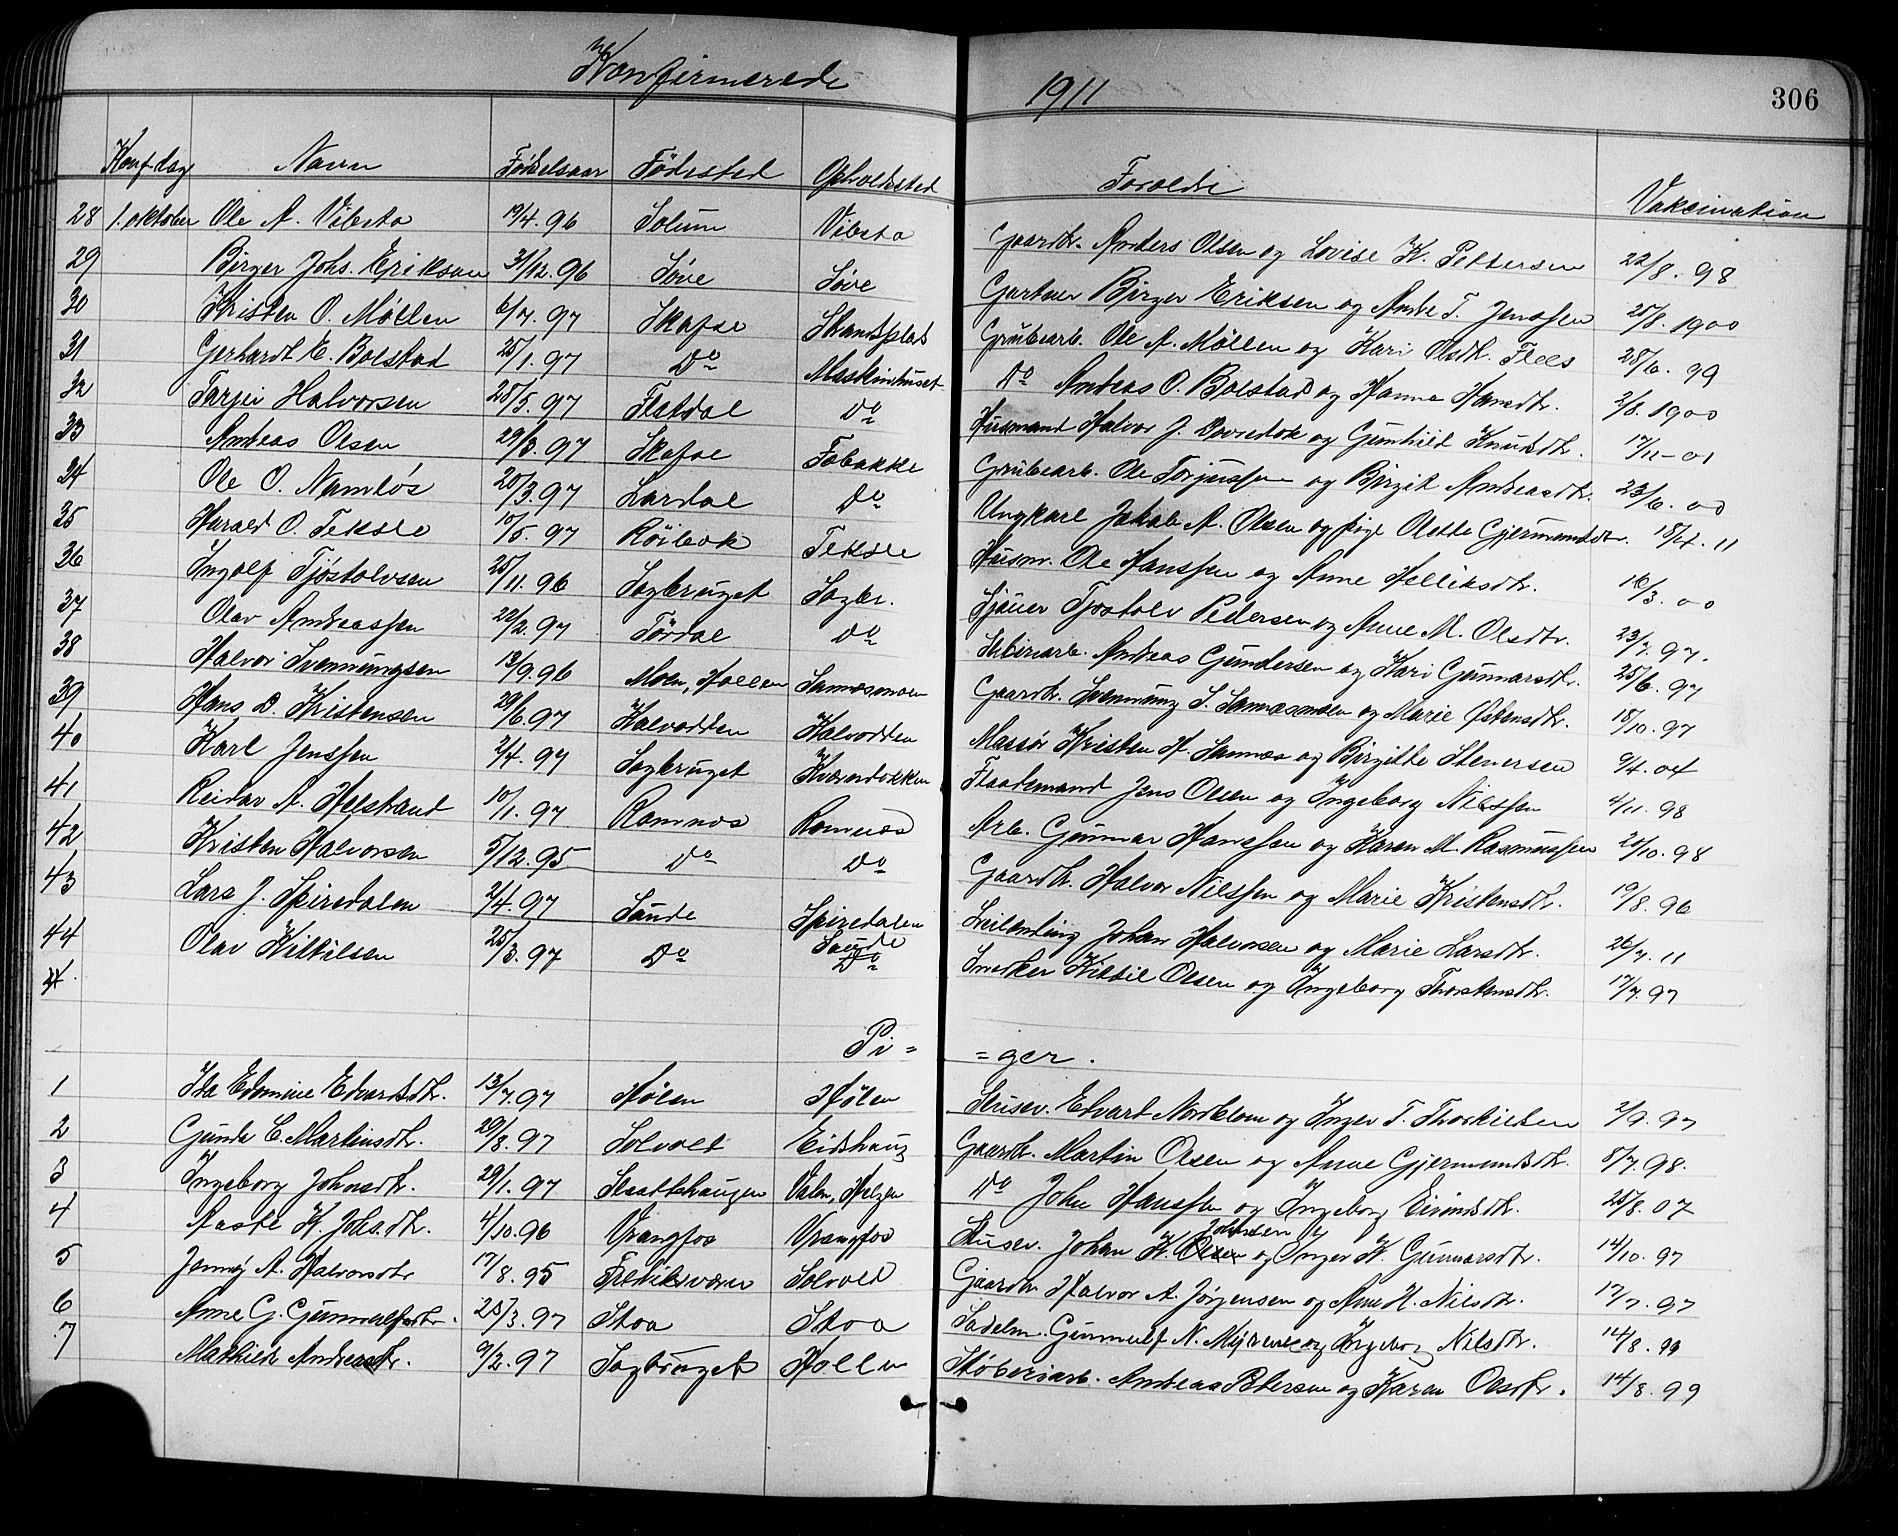 Konfirmerede 1911 306
Konf.dag Navn Fødselsaar Fødested Opholdssted Foreldre Vakcination
28 1. oktober Ole A. Vibeto 19/4.96 Solum Vibeto Gaardbr. Anders Olsen og Lovise K. Pettersen 22/8.98
29 Birger Johs. Eriksen 31/12.96 Søve Søve Gartner Birger Eriksen og Andr. T. Jenssen 25/8.1900
30 Kristen O. Møllen 6/7.97 Skafse Skandsplas Grubearb. Ole A. Møllen og Kari Olsdtr. 28/6.99
31 Gerhardt E. Bolstad 25/1.97 Do Maskinhuset Do Andreas O. Bolstad og Hanna Hansdtr. 2/8.1900
32 Tarjei Halvorsen 25/5.97 Flatdal Do Husmand Halvor J. og Gunhild Knutsdtr. 17/11-01
33 Andreas Olsen 29/3.97 Skafse Fobakke Grubearb. Ole Torjussen og Birgit Andreasdtr. 23/6.00
34 Ole O. Namløs 20/3.97 Lardal Do Ungkarl Jakob A. Olsen og pige Olette Gjermundsdtr. 18/4.11
35 Harald O. Teksle 10/5.97 Teksle Husm. Ole Hanssen og Anne Helliksdtr. 16/3.00
36 Ingolf Tjøstolvsen 25/11.96 Sagbruget Sagbr. Sjauer Tjøstolv Pedersen og Anne M. Olsdtr. 23/7.97.
37 Olav Andreassen 22/2.97 Tørdal Do Andreas Gundersen og Kari Gunnarsdtr. 25/6.97
38 Halvor Svennungsen 13/9.96 Moen, Hollen Sannesmoen Gaardbr. Svennung S. Sannesmoen og Marie Østensdtr. 18/10.97
39 Hans D. Kristensen 29/6.97 Kalvodden Kalvodden Massør Kristen H. Sannes og Birgitte Stenersen 9/4.04
40 Karl Jenssen 2/4.97 Sagbruget Kværndokken Flaademand Jens Olsen og Ingeborg Nilssen 4/11.98
41 Reidar A. Helstrand 10/1.97 Romnes Romnes Arb. Gunnar Hanssen og Karen M. Rasmussen 20/10.98
42 Kristen Halvorsen 5/12.95 Do Do Gaardbr. Halvor Nilssen og Marie Kristensdtr. 19/8.96
43 Lars J. Spiredalen 2/4.97 Saude Spiredalen Saude Leilending Johan Halvorsen og Marie Larsdtr. 26/7.11
44 Olav Kittilsen 25/3.97 Do Do Snedker Kittil Olsen og Ingeborg Thorstensdtr. 17/7.97
Pi= =ger.
1 Ida Edomine Edvardsdtr. 13/7.97 Hølen Hølen Slusev. Edvart Nordblom og Inger T. Thorkilsen 2/9.97
2 Gunda C. Martinsdtr. 29/8.97 Solvold Eidshaug Gaardbr. Martin Olsen og Anne Gjermundsdtr. 8/7.98.
3 Ingeborg Johnsdtr. 29/1.97 Slaattehaugen Valen, Helgen Do John Hanssen og Ingeborg Eivindsdtr. 25/8.07
4 Aaste K. Johsdtr. 4/10.96 Vrangfos Vrangfos Slusev. Johan K. Olsen Johnsen og Inger K. Gunnarsdtr. 14/10.97
5 Jenny A. Halvorsdtr 17/8.95 Fredriksværn Solvold Gaardbr Halvor A. Jørgensen og Anne H. Nilsdtr. 17/7.97
6 Anne G. Gunnulfsdtr. 25/3.97 Stoa Stoa Sadelm. Gunnulf N. Myrene og Ingeborg Nilsdtr. 14/8.99
7 Mathilde Andreasdtr. 9/2.97 Sagbruget Hollen Støberiarb. Andreas Petersen og Karen Olsdtr. 14/8.99